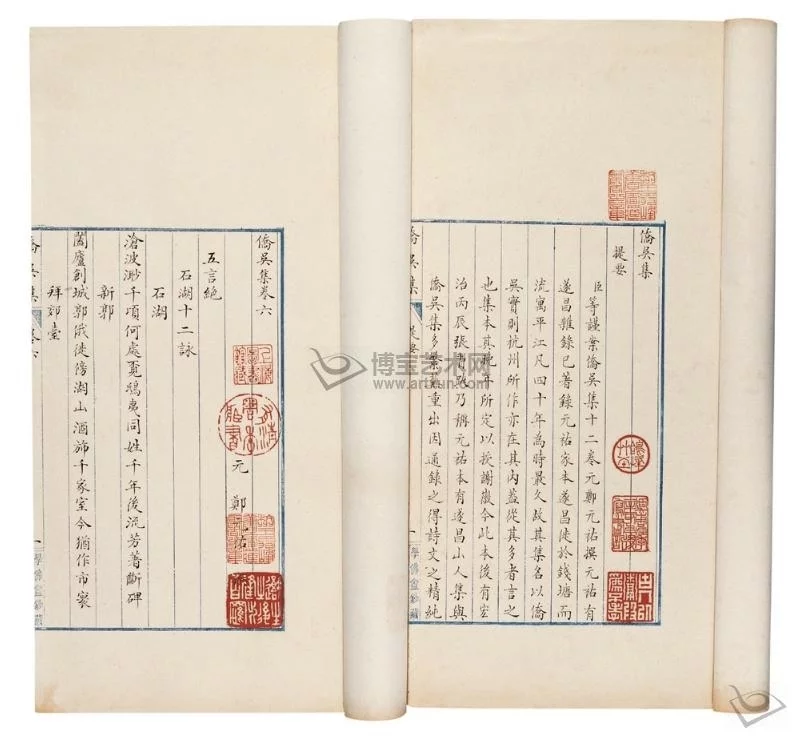 僑吳集
提要
臣等謹案僑吳集十二卷元鄭元祐撰元祐有
遂昌雜錄已著錄元祐家本遂昌徙於錢塘而
流寓平江凡四十年為時最久故其集名以僑
吳實則杭州所作亦在其內蓋從其多者言之
也集本其晚年所定以授謝徽今此本後有宏
治丙辰張習跋乃稱元祐本有遂昌山人集與
僑吳集多繁蕪重出因通錄之得詩文之精純
僑吳集
提要
一
僑吳集卷六
元 鄭元祐
五言絕
石湖十二詠
石湖
滄波渺千頃何處覓鴟夷同姓千年後流芳著斷碑
新郭
闔廬創城郭俄徙傍湖山酒旆千家室今猶作市寰
拜郊臺
僑吳集
卷六
一
博宝艺术网
www.artxun.com